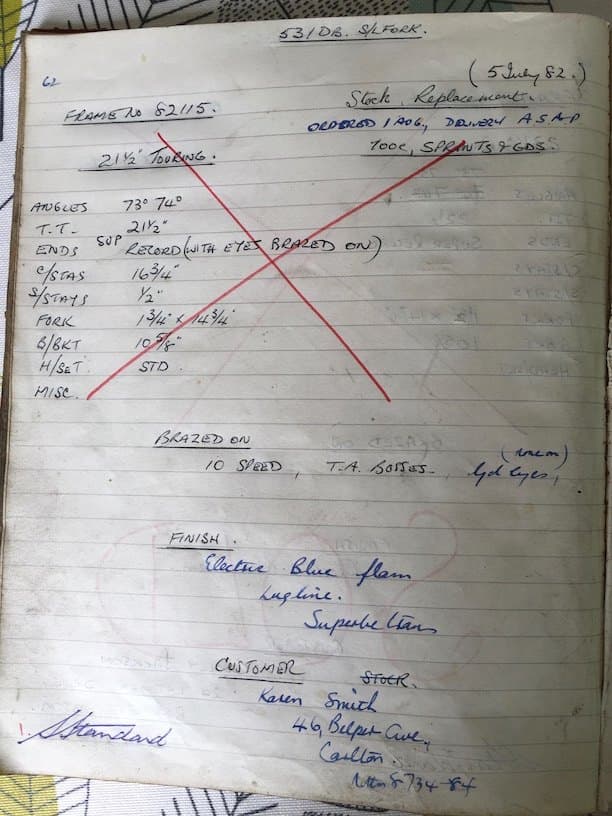 531 DB. S/L FORK.
62
(5 July 82.)
FRAME No 82115.
Stock Replacement.
ORDERED 1 AUG., DELIVERY A S A P
21½" TOURING.
700c, SPRINTS & GDS.
ANGLES 73° 74°
T.T. 21½"
ENDS SUP RECORD (WITH EYES BRAZED ON)
C/STAS 16¾"
S/STAYS ½"
FORK 1¾" x 14¾"
B/BKT 10 5/8"
H/SET STD.
MISC.
BRAZED ON
10 SPEED, T.A. BOSSES.
FINISH.
Electric Blue flam
Lugline.
Superbe trans
CUSTOMER STOCK.
Karen Smith
46, Belper Ave,
Carlton.
1. Standard